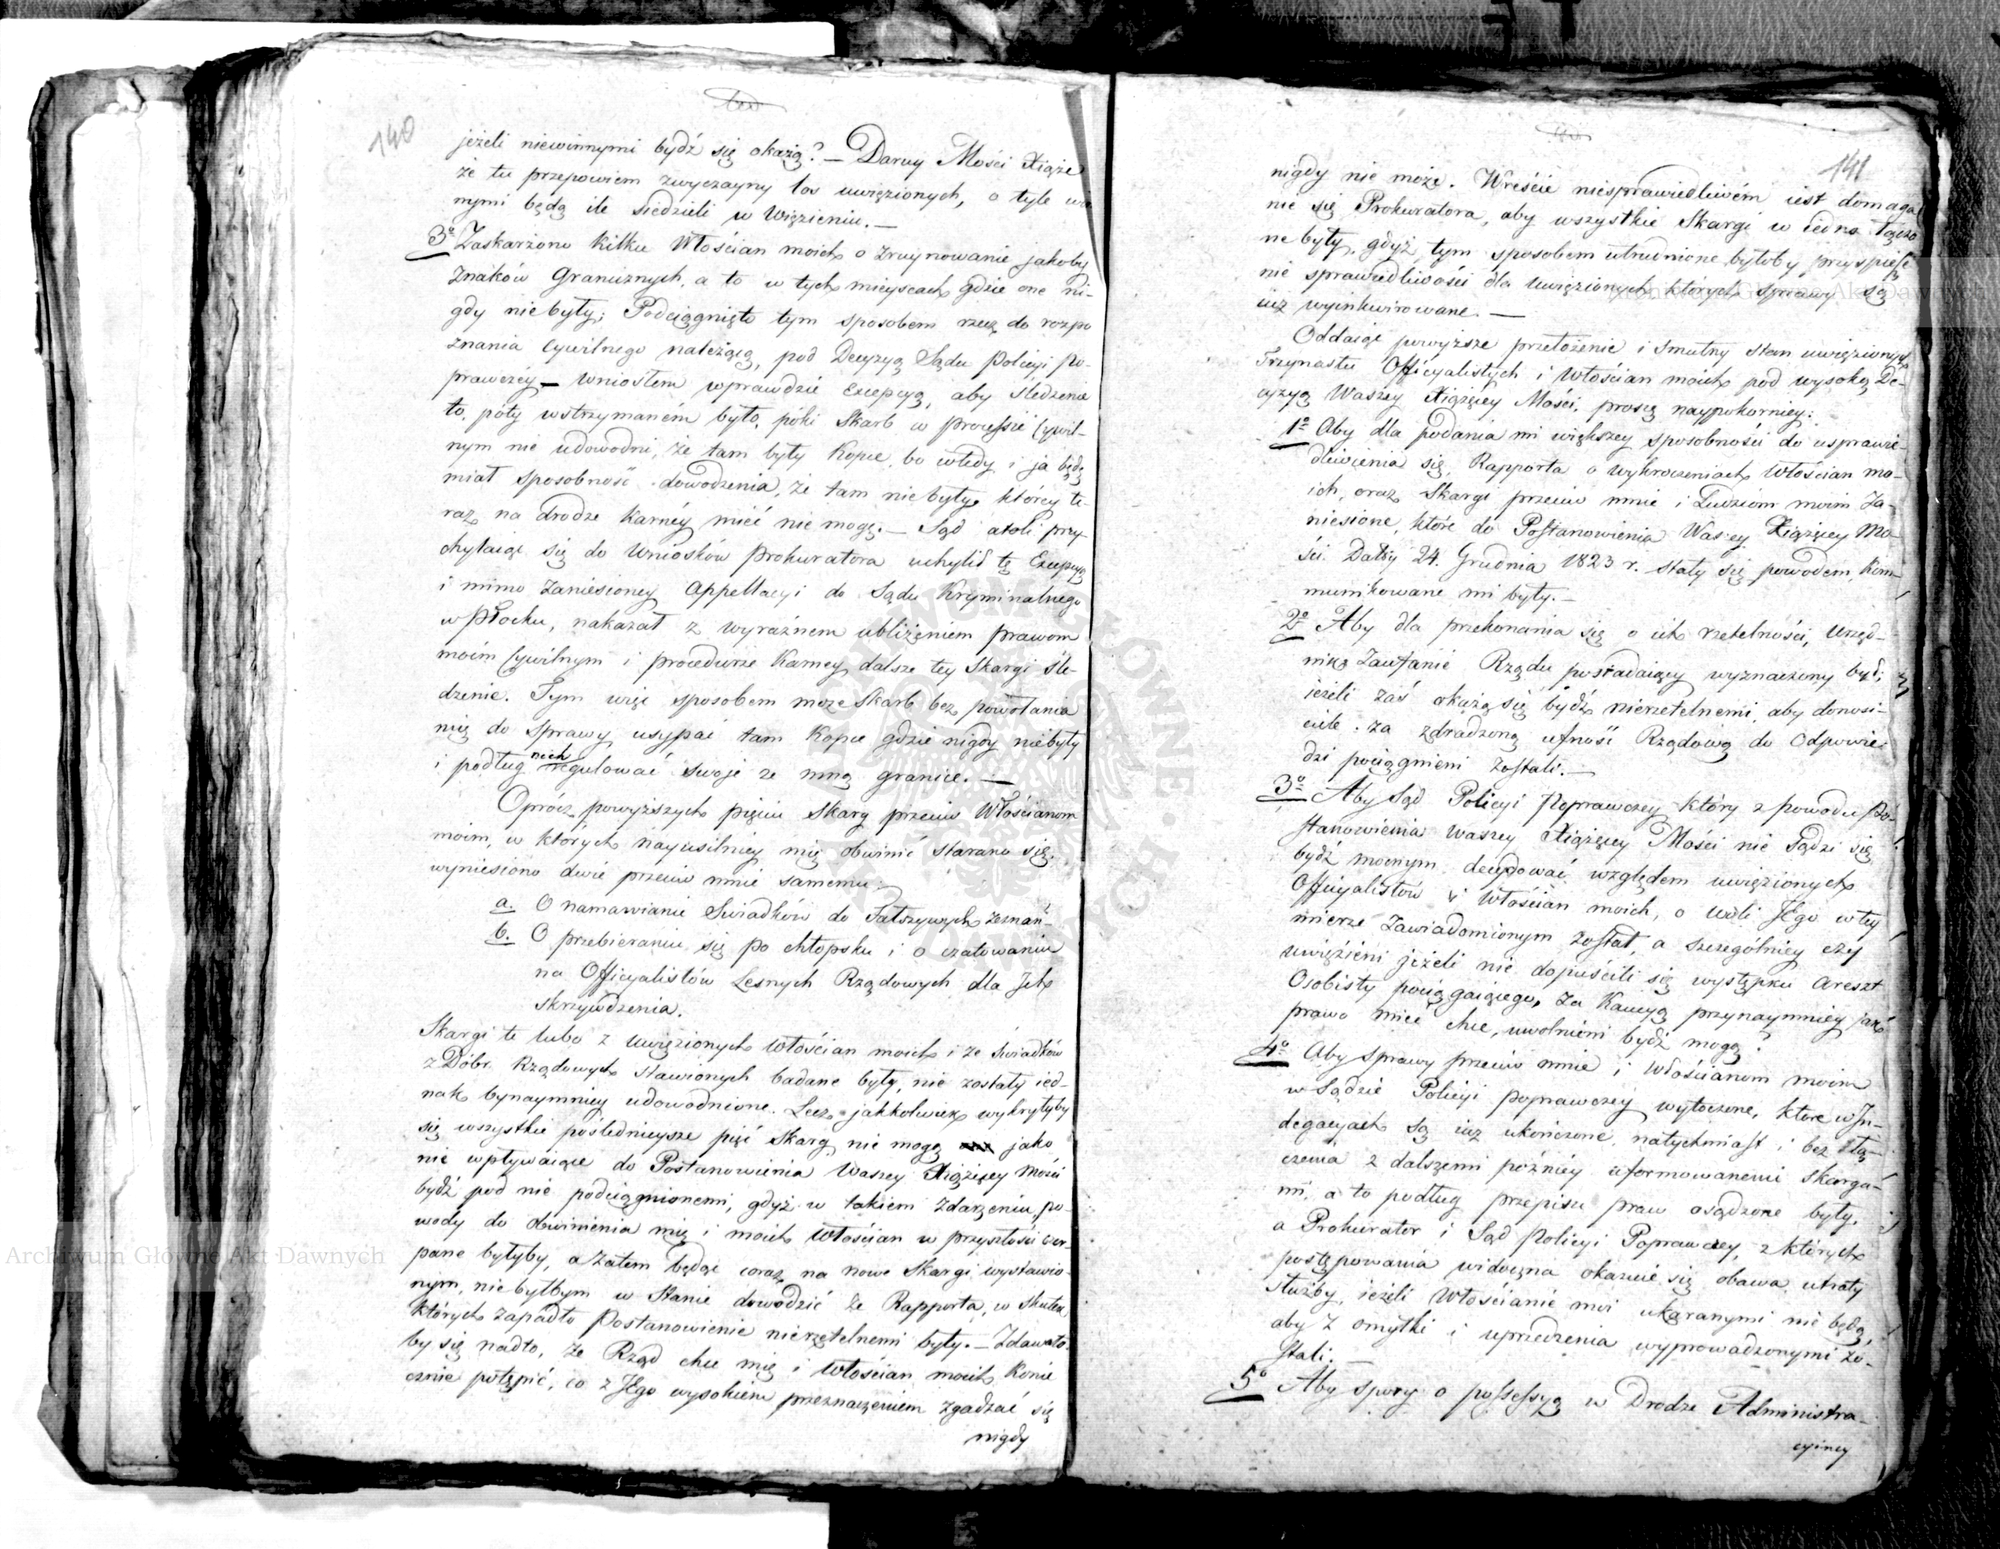 140
jeżeli niewinnymi bydź się okażą? — Daruy Mości Xiąże
że tu przepowiem zwyczayny los uwięzionych, o tyle win
nymi będą ile siedzieli w Więzieniu. —
3º Zaskarżono kilku Włościan moich o zruynowanie jakoby
znaków Granicznych, a to w tych mieyscach gdzie one ni-
gdy nie były; Podciągnięto tym sposobem rzecz do rozpo
znania Cywilnego należącą, pod Decyzyą Sądu Policyi Po-
prawczéy — wniosłem wprawdzie Excepcyą, aby śledzenie
to, póty wstrzymaném było, póki Skarb w Processie Cywil-
nym nie udowodni, że tam były Kopce, bo wtedy i ja będę
miał sposobność dowodzenia, że tam nie były, któréy te-
raz na drodze Karnéy mieć nie mogę. — Sąd atoli przy-
chylaiąc się do Wniosków Prokuratora uchylił tę Excepcyą
i mimo zaniesioney Appellacyi do Sądu Kryminalnego
w Płocku, nakazał z wyraźnem ubliżeniem prawom
moim Cywilnym i procedurze Karney dalsze tey Skargi śle-
dzenie. Tym więc sposobem może Skarb bez powołania
mię do sprawy, usypać tam Kopce gdzie nigdy nie były
i podług nich regulować swoje ze mną granice. —
Oprócz powyższych pięciu Skarg przeciw Włościanom
moim, w których nayusilniey mię obwinić starano się,
wyniesiono dwie przeciw mnie samemu:
a. O namawianie Świadków do fałszywych zeznań —
b. O przebieraniu się po chłopsku i o czatowaniu
na Officyalistów Leśnych Rządowych dla Ich
skrzywdzenia.
Skargi te lubo z uwięzionych Włościan moich i ze świadków
z Dóbr Rządowych stawionych badane były, nie zostały ied-
nak bynaymniey udowodnione. Lecz jakkolwiek wykryłyby
się wszystkie poślednieysze pięć Skarg, nie mogą jako
nie wpływaiące do Postanowienia Waszey Xiążęcey Mości
bydź pod nie podciągnionemi, gdyż w takiem zdarzeniu, po-
wody do obwinienia mię i moich Włościan w przyszłości czer-
pane byłyby, a zatem będąc coraz na nowe Skargi wystawio-
nym, nie byłbym w Stanie dowodzić że Rapporta, w skutku
których zapadło Postanowienie nierzetelnemi były. — Zdawało-
by się nadto, że Rząd chce mię i Włościan moich Konie
cznie potępić, co z Jego wysokiem przeznaczeniem zgadzać się
nigdy
141
nigdy nie może. Wreście niesprawiedliwém iest domaga
nie się Prokuratora, aby wszystkie Skargi w iedno łączo
ne były, gdyż tym sposobem utrudnione byłoby przyspiesze
nie sprawiedliwości dla uwięzionych których sprawy są
iuż wyinkwirowane. —
Oddaiąc powyższe przełożenie i smutny stan uwięzionych
Trzynastu Officyalistych i Włościan moich pod wysoką De-
cyzyą Waszey Xiążęcey Mości, proszę naypokorniey:
1º Aby dla podania mi większey sposobności do usprawie-
dliwienia się, Rapporta o wykroczeniach Włościan mo-
ich, oraz Skargi przeciw mnie i Ludziom moim za-
niesione, które do Postanowienia Waszey Xiążęcey Mo-
ści Datky 24. Grudnia 1823 r. stały się powodem, kom-
munikowane mi były. —
2º Aby dla przekonania się o ich rzetelności, Urzęd-
nik zaufanie Rządu posiadaiący wyznaczony był;
ieżeli zaś okażą się bydź nierzetelnemi, aby donosi-
ciele za zdradzoną ufność Rządową do Odpowie-
dzi pociągnieni zostali. —
3º Aby Sąd Policyi Poprawczey który z powodu Po-
stanowienia Waszey Xiążęcey Mości nie sądzi się
bydź mocnym decydować względem uwięzionych
Officyalistów i Włościan moich, o woli Jego w tey
mierze zawiadomionym został, a szczególniey czy
uwięzieni jeżeli nie dopuścili się występku areszt
Osobisty pociągaiącego, za Kaucyą przynaymniey jako
prawo mieć chce, uwolnieni bydź mogą?
4º Aby sprawy przeciw mnie i Włościanom moim
w Sądzie Policyi Poprawczey wytoczone, które w In-
dagacyach są iuż ukończone, natychmiast i bez złą-
czenia z dalszemi później uformowanemi skarga-
mi, a to podług przepisu praw osądzone były.
a Prokurator i Sąd Policyi Poprawczey, z których
postępowania widoczna okazuie się obawa utraty
służby, ieżeli Włościanie moi ukaranymi nie będą,
aby z omyłki i uprzedzenia wyprowadzonymi zo-
stali. —
5º Aby spory o possessyą w Drodze Administra-
cyiney
Archiwum Główne Akt Dawnych